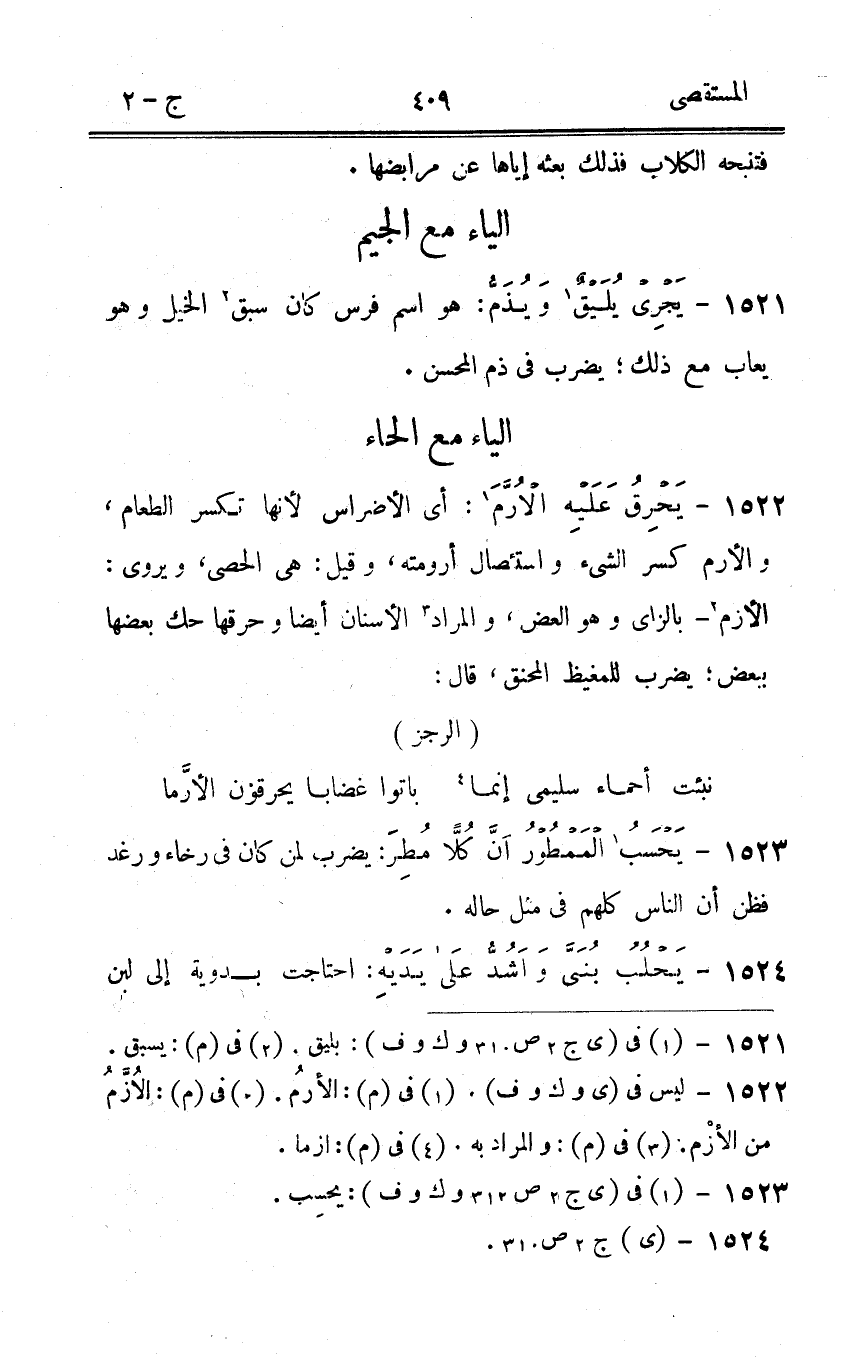 المستقصى ٤٠٩ ج – ٢
فتنبحه الكلاب فذلك بعثه إياها عن مرابضها .
الياء مع الجيم
١٥٢١ – يَجْرِى بُلَيْقٌ١ وَ يُذَمُّ: هو اسم فرس كان سبق٢ الخيل و هو
يعاب مع ذلك؛ يضرب فى ذم المحسن .
الياء مع الحاء
١٥٢٢ – يَحْرِقُ عَلَيْهِ الْأُرَّمَ١ : أى الأضراس لأنها تكسر الطعام ،
و الأرم كسر الشىء و استئصال أرومته، و قيل: هى الحصى، و يروى :
الأزم٢ – بالزاى و هو العض، و المراد٣ الأسنان أيضا و حرقها حك بعضها
ببعض؛ يضرب للمغيظ المحنق، قال:
( الرجز )
نبئت أحماء سليمى إنما٤ باتوا غضابا يحرقون الأرَّما
١٥٢٣ – يَحْسَبُ١ الْمَمْطُورُ اَنَّ كُلًّا مُطِرَ: يضرب لمن كان فى رخاء و رغد
فظن أن الناس كلهم فى مثل حاله .
١٥٢٤ – يَحْلُبُ بُنَىَّ وَ اَشُدُّ عَلٰى يَدَيْهِ: احتاجت بدوية إلى لبن
١٥٢١ – (١) فى (ى ج ٢ ص ٣١٠ و ك و ف) : بليق . (٢) فى (م) : يسبق .
١٥٢٢ – ليس فى (ى و ك و ف) . (١) فى (م) : الأرمُ . (٠) فى (م) : الأُزَّمُ
من الأزْم. (٣) فى (م) : و المراد به . (٤) فى (م) : ازما .
١٥٢٣ – (١) فى (ى ج ٢ ص ٣١٢ و ك و ف) : يحسِب .
١٥٢٤ – (ى) ج ٢ ص ٣١٠ .